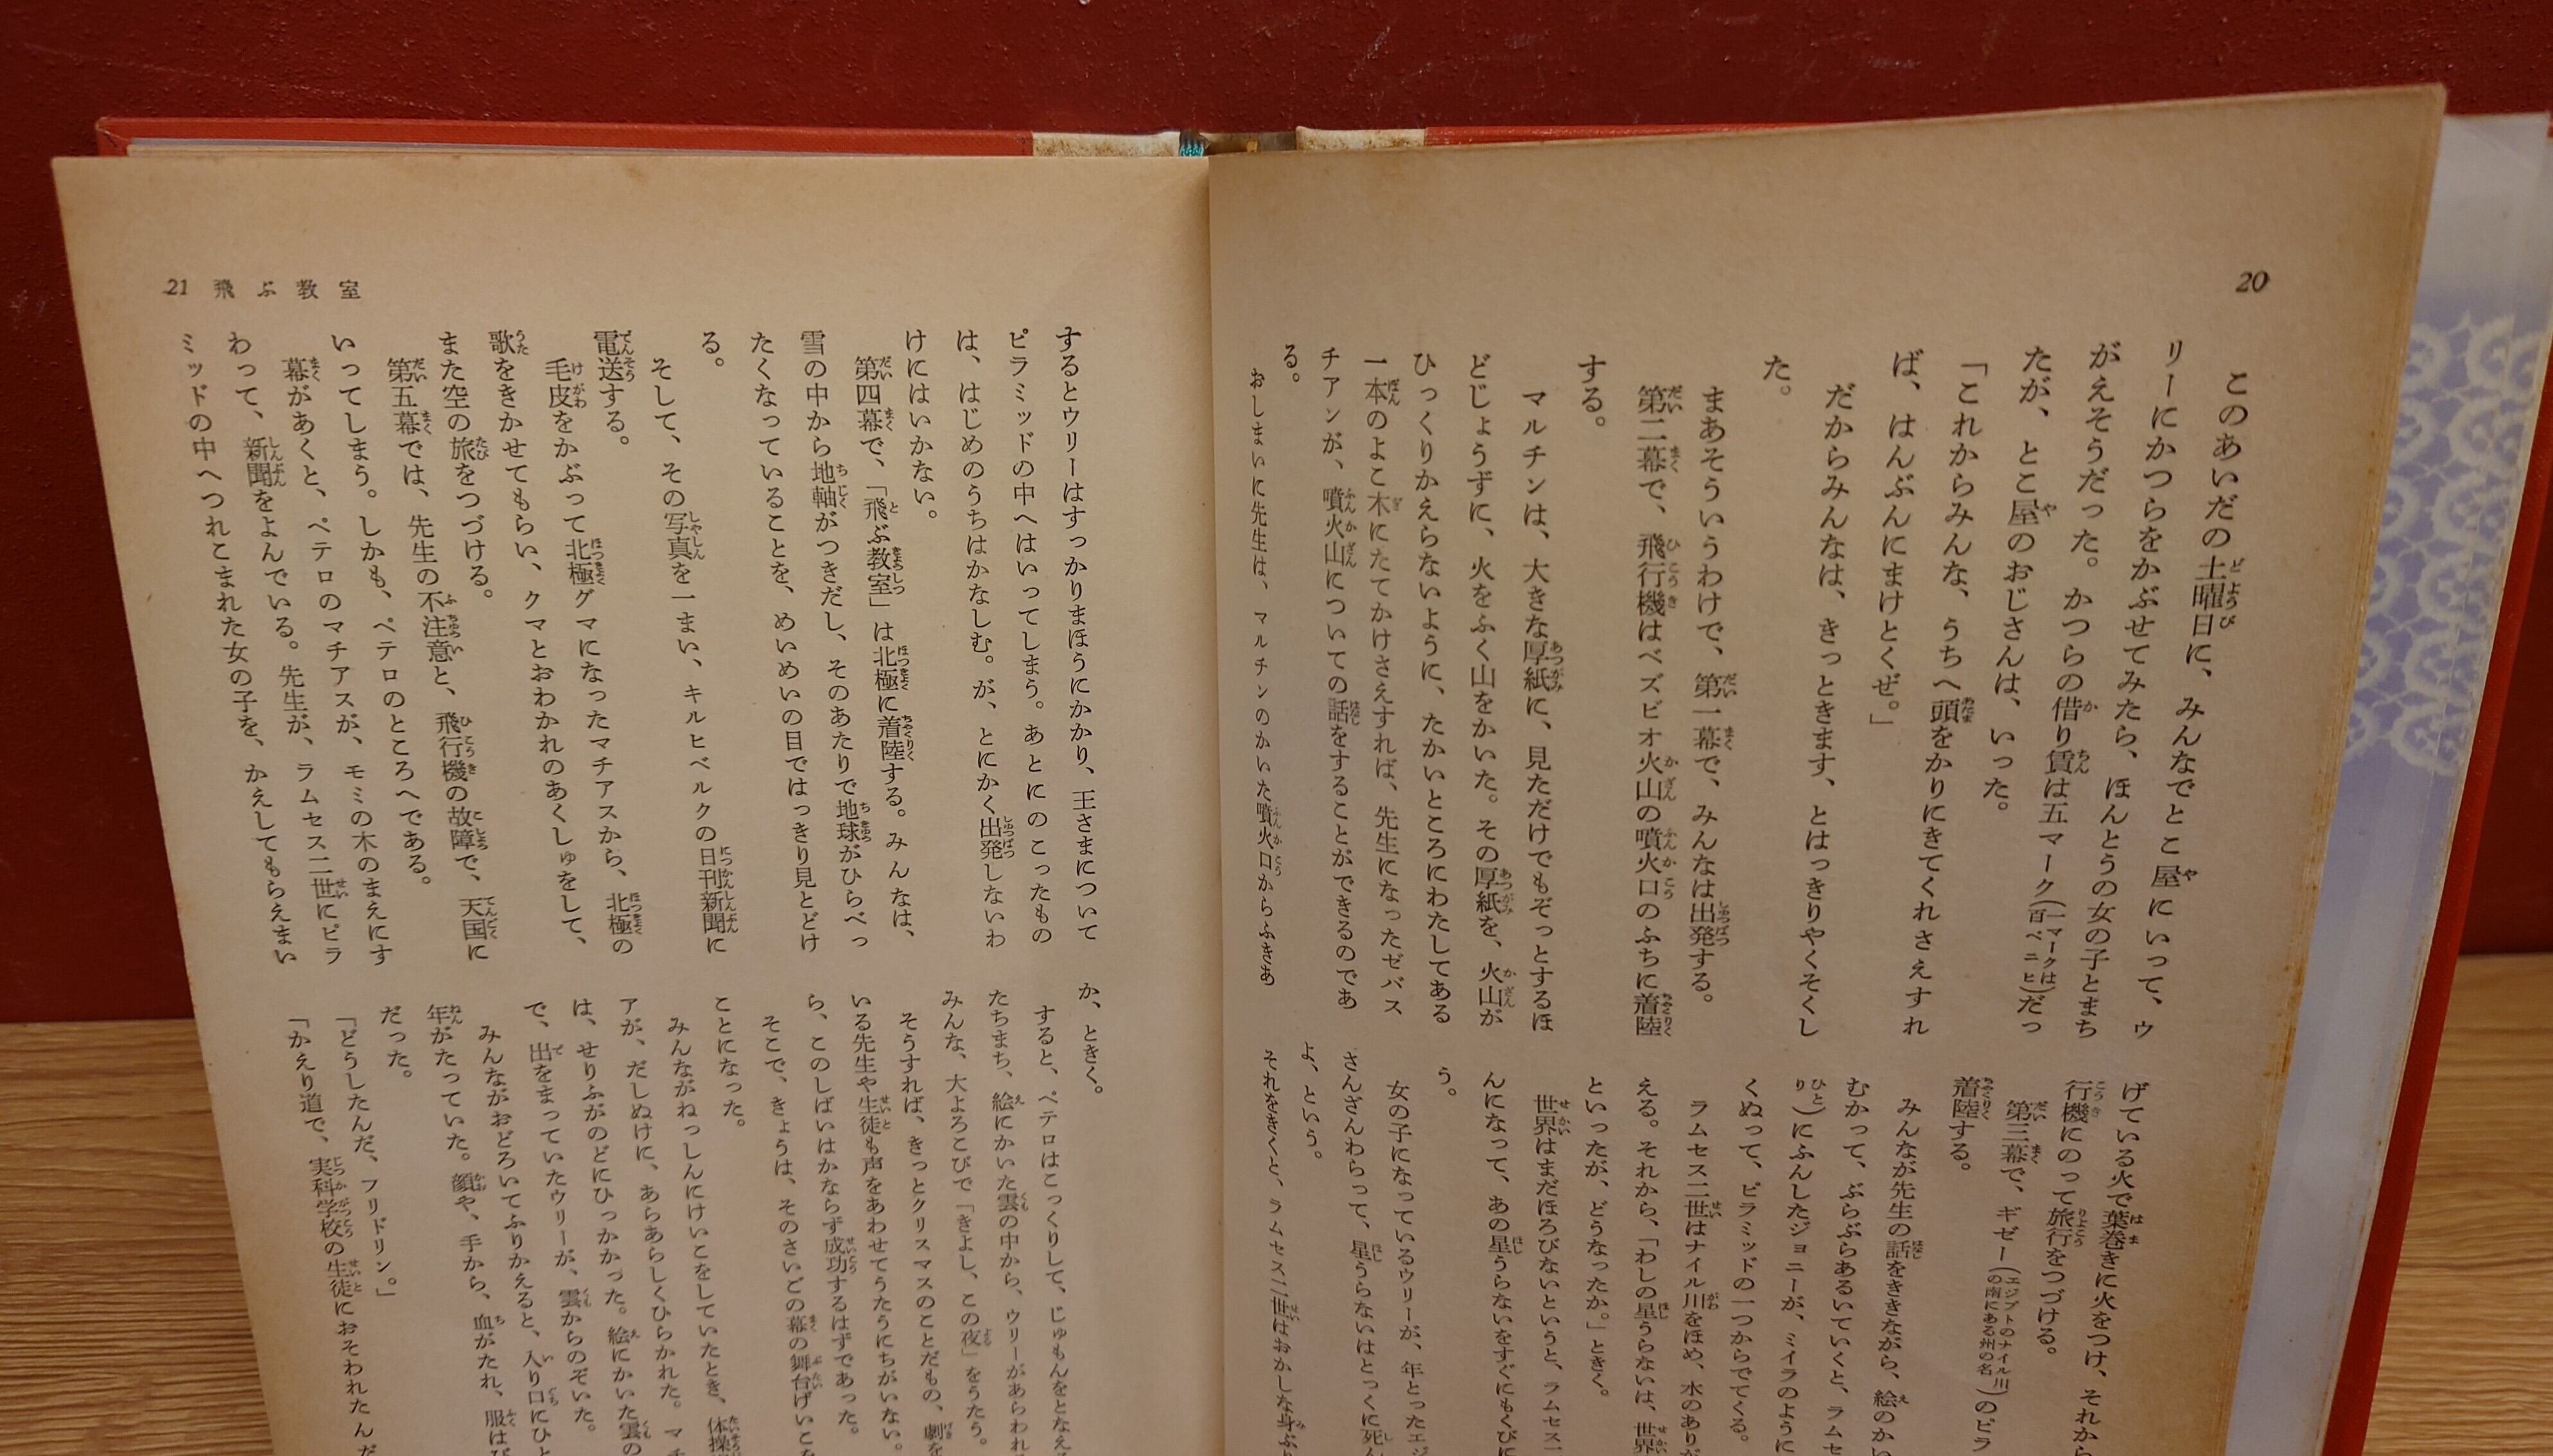 20
このあいだの土曜日に、みんなでとこ屋にいって、ウ
リーにかつらをかぶせてみたら、ほんとうの女の子とまち
がえそうだった。かつらの借り賃は五マーク(一マークは百ペニヒ)だっ
たが、とこ屋のおじさんは、いった。
「これからみんな、うちへ頭をかりにきてくれさえすれ
ば、はんぶんにまけとくぜ。」
だからみんなは、きっときます、とはっきりやくそくし
た。
まあそういうわけで、第一幕で、みんなは出発する。
第二幕で、飛行機はベズビオ火山の噴火口のふちに着陸
する。
マルチンは、大きな厚紙に、見ただけでもぞっとするほ
どじょうずに、火をふく山をかいた。その厚紙を、火山が
ひっくりかえらないように、たかいところにわたしてある
一本のよこ木にたてかけさえすれば、先生になったゼバス
チアンが、噴火山についての話をすることができるのであ
る。
おしまいに先生は、マルチンのかいた噴火口からふきあ
げている火で葉巻きに火をつけ、それから
行機にのって旅行をつづける。
第三幕で、ギゼー(エジプトのナイル川の南にある州の名)のピラ
着陸する。
みんなが先生の話をききながら、絵のかい
むかって、ぶらぶらあるいていくと、ラムセ
り)にふんしたジョニーが、ミイラのように
くぬって、ピラミッドの一つからでてくる。
ラムセス二世はナイル川をほめ、水のありが
える。それから、「わしの星うらないは、世界
といったが、どうなったか。」ときく。
世界はまだほろびないというと、ラムセス二
んになって、あの星うらないをすぐにもくびに
う。
女の子になっているウリーが、年とったエジ
さんざんわらって、星うらないはとっくに死ん
よ、という。
それをきくと、ラムセス二世はおかしな身ぶ
21 飛ぶ教室
するとウリーはすっかりまほうにかかり、王さまについて
ピラミッドの中へはいってしまう。あとにのこったもの
は、はじめのうちはかなしむ。が、とにかく出発しないわ
けにはいかない。
第四幕で、「飛ぶ教室」は北極に着陸する。みんなは、
雪の中から地軸がつきだし、そのあたりで地球がひらべっ
たくなっていることを、めいめいの目ではっきり見とどけ
る。
そして、その写真を一まい、キルヒベルクの日刊新聞に
電送する。
毛皮をかぶって北極グマになったマチアスから、北極の
歌をきかせてもらい、クマとおわかれのあくしゅをして、
また空の旅をつづける。
第五幕では、先生の不注意と、飛行機の故障で、天国に
いってしまう。しかも、ペテロのところへである。
幕があくと、ペテロのマチアスが、モミの木のまえにす
わって、新聞をよんでいる。先生が、ラムセス二世にピラ
ミッドの中へつれこまれた女の子を、かえしてもらえまい
か、ときく。
すると、ペテロはこっくりして、じゅもんをとなえ
たちまち、絵にかいた雲の中から、ウリーがあらわれ
みんな、大よろこびで「きよし、この夜」をうたう。
そうすれば、きっとクリスマスのことだもの、劇を
いる先生や生徒も声をあわせてうたうにちがいない。
ら、このしばいはかならず成功するはずであった。
そこで、きょうは、そのさいごの幕の舞台げいこを
ことになった。
みんながねっしんにけいこをしていたとき、体操
アが、だしぬけに、あらあらしくひらかれた。マチ
は、せりふがのどにひっかかった。絵にかいた雲の
で、出をまっていたウリーが、雲からのぞいた。
みんながおどろいてふりかえると、入り口にひと
年がたっていた。顔や、手から、血がたれ、服は
だった。
「どうしたんだ、フリドリン。」
「かえり道で、実科学校の生徒におそわれたんだ